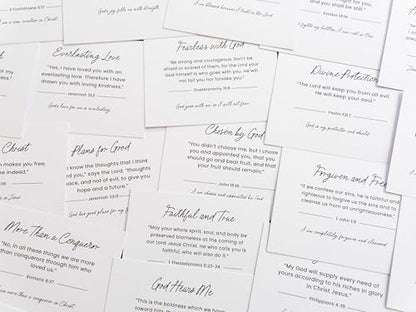 2 Corinthians 5:17
in Christ
God's joy fills me with strength
I am blessed because I trust in the Lord
you shall be still."
Exodus 14:14
Everlasting Love
"Yes, I have loved you with an
everlasting love. Therefore I have
drawn you with loving kindness."
Jeremiah 31:3
God's love for me is everlasting
Fearless with God
"Be strong and courageous. Don't be
afraid or scared of them, for the Lord your
God himself is who goes with you. He will
not fail you nor forsake you."
Deuteronomy 31:6
God goes with me so I will not fear
Divine Protection
"The Lord will keep you from all evil.
He will keep your soul."
Psalm 121:7
God is my protection and shield
Christ
makes you free,
be indeed."
Plans for Good
know the thoughts that I think
you," says the Lord, "thoughts
peace, and not of evil, to give you
hope and a future."
Jeremiah 29:11
God has good plans for my
Chosen by God
"You didn't choose me, but I chose
you and appointed you, that you
should go and bear fruit, and that
your fruit should remain;"
John 15:16
I am chosen and
Forgiven and Free
"If we confess our sins, he is faithful and
righteous to forgive us the sins and to
cleanse us from all unrighteousness."
1 John 1:9
I am completely forgiven and cleansed
More Than a Conqueror
"No, in all these things we are more
than conquerors through him who
loved us."
Romans 8:37
more than a conqueror in Christ
Faithful and True
"May your whole spirit, soul, and body be
preserved blameless at the coming of
our Lord Jesus Christ. He who calls you
is faithful, who will also do it."
1 Thessalonians 5:23-24
God Hears Me
"This is the boldness which we have
toward him,
"My God will supply every need of
yours according to his riches in glory
in Christ Jesus."
Philippians 4:19